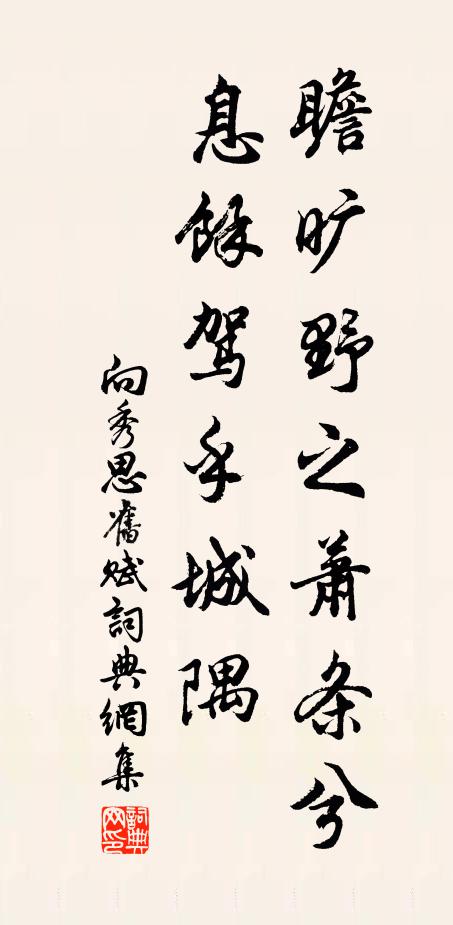 瞻旷野之萧条兮
息馀驾乎城隅
向秀思舊赋詞典網集
詞典网印